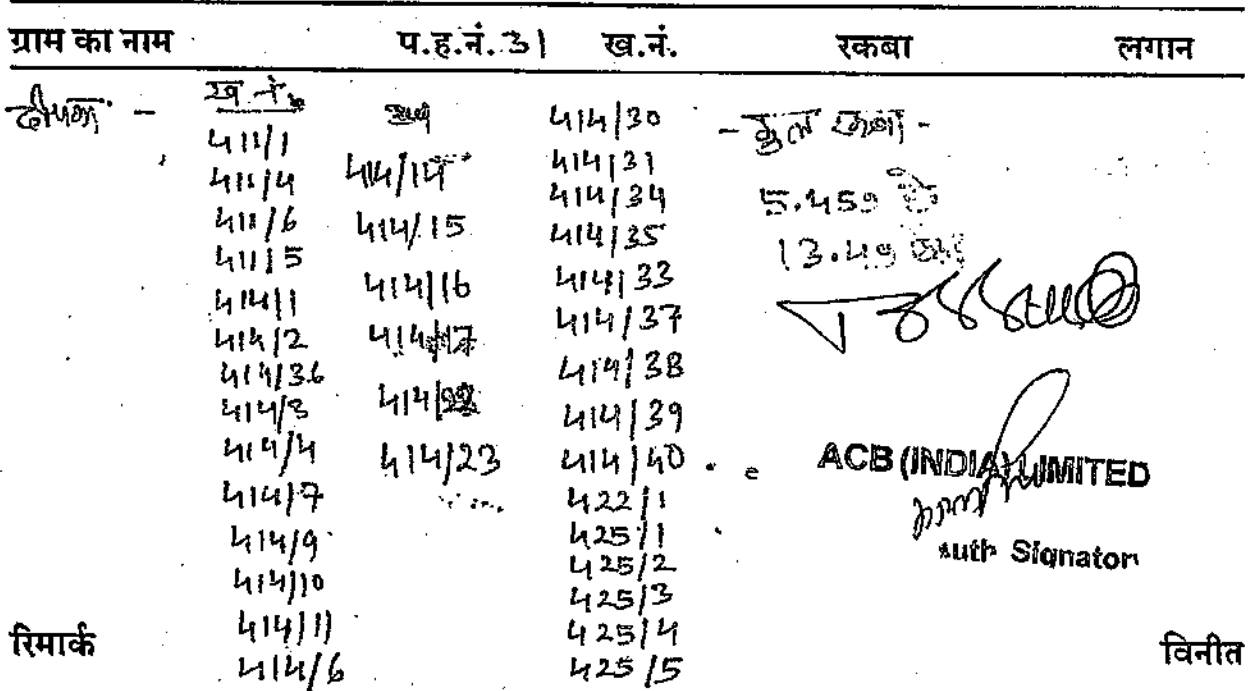 ग्राम का नाम प.ह.नं. 31 ख.नं. रकबा लगान
दीपका - ख.नं. 414/30 - कुल रकबा -
411/1 414/31
411/4 414/14 414/34 5.459 हे
411/6 414/15 414/35
411/5 13.49
414/1 414/16 414/33
414/2 414/17 414/37
414/36 414/38
414/3 414/39
414/4 414/23 414/40 ACB (INDIA) LIMITED
414/7 422/1
414/9 425/1
425/2 Auth Signator
414/10 425/3
रिमार्क 414/11 425/4 विनीत
414/6 425/5